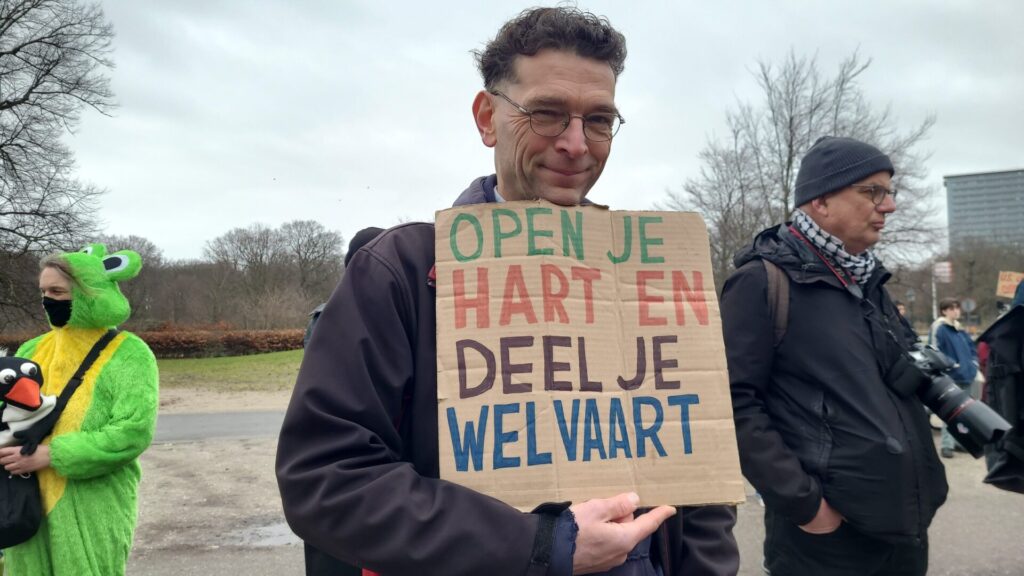 OPEN JE
HART EN
DEEL JE
WELVAART